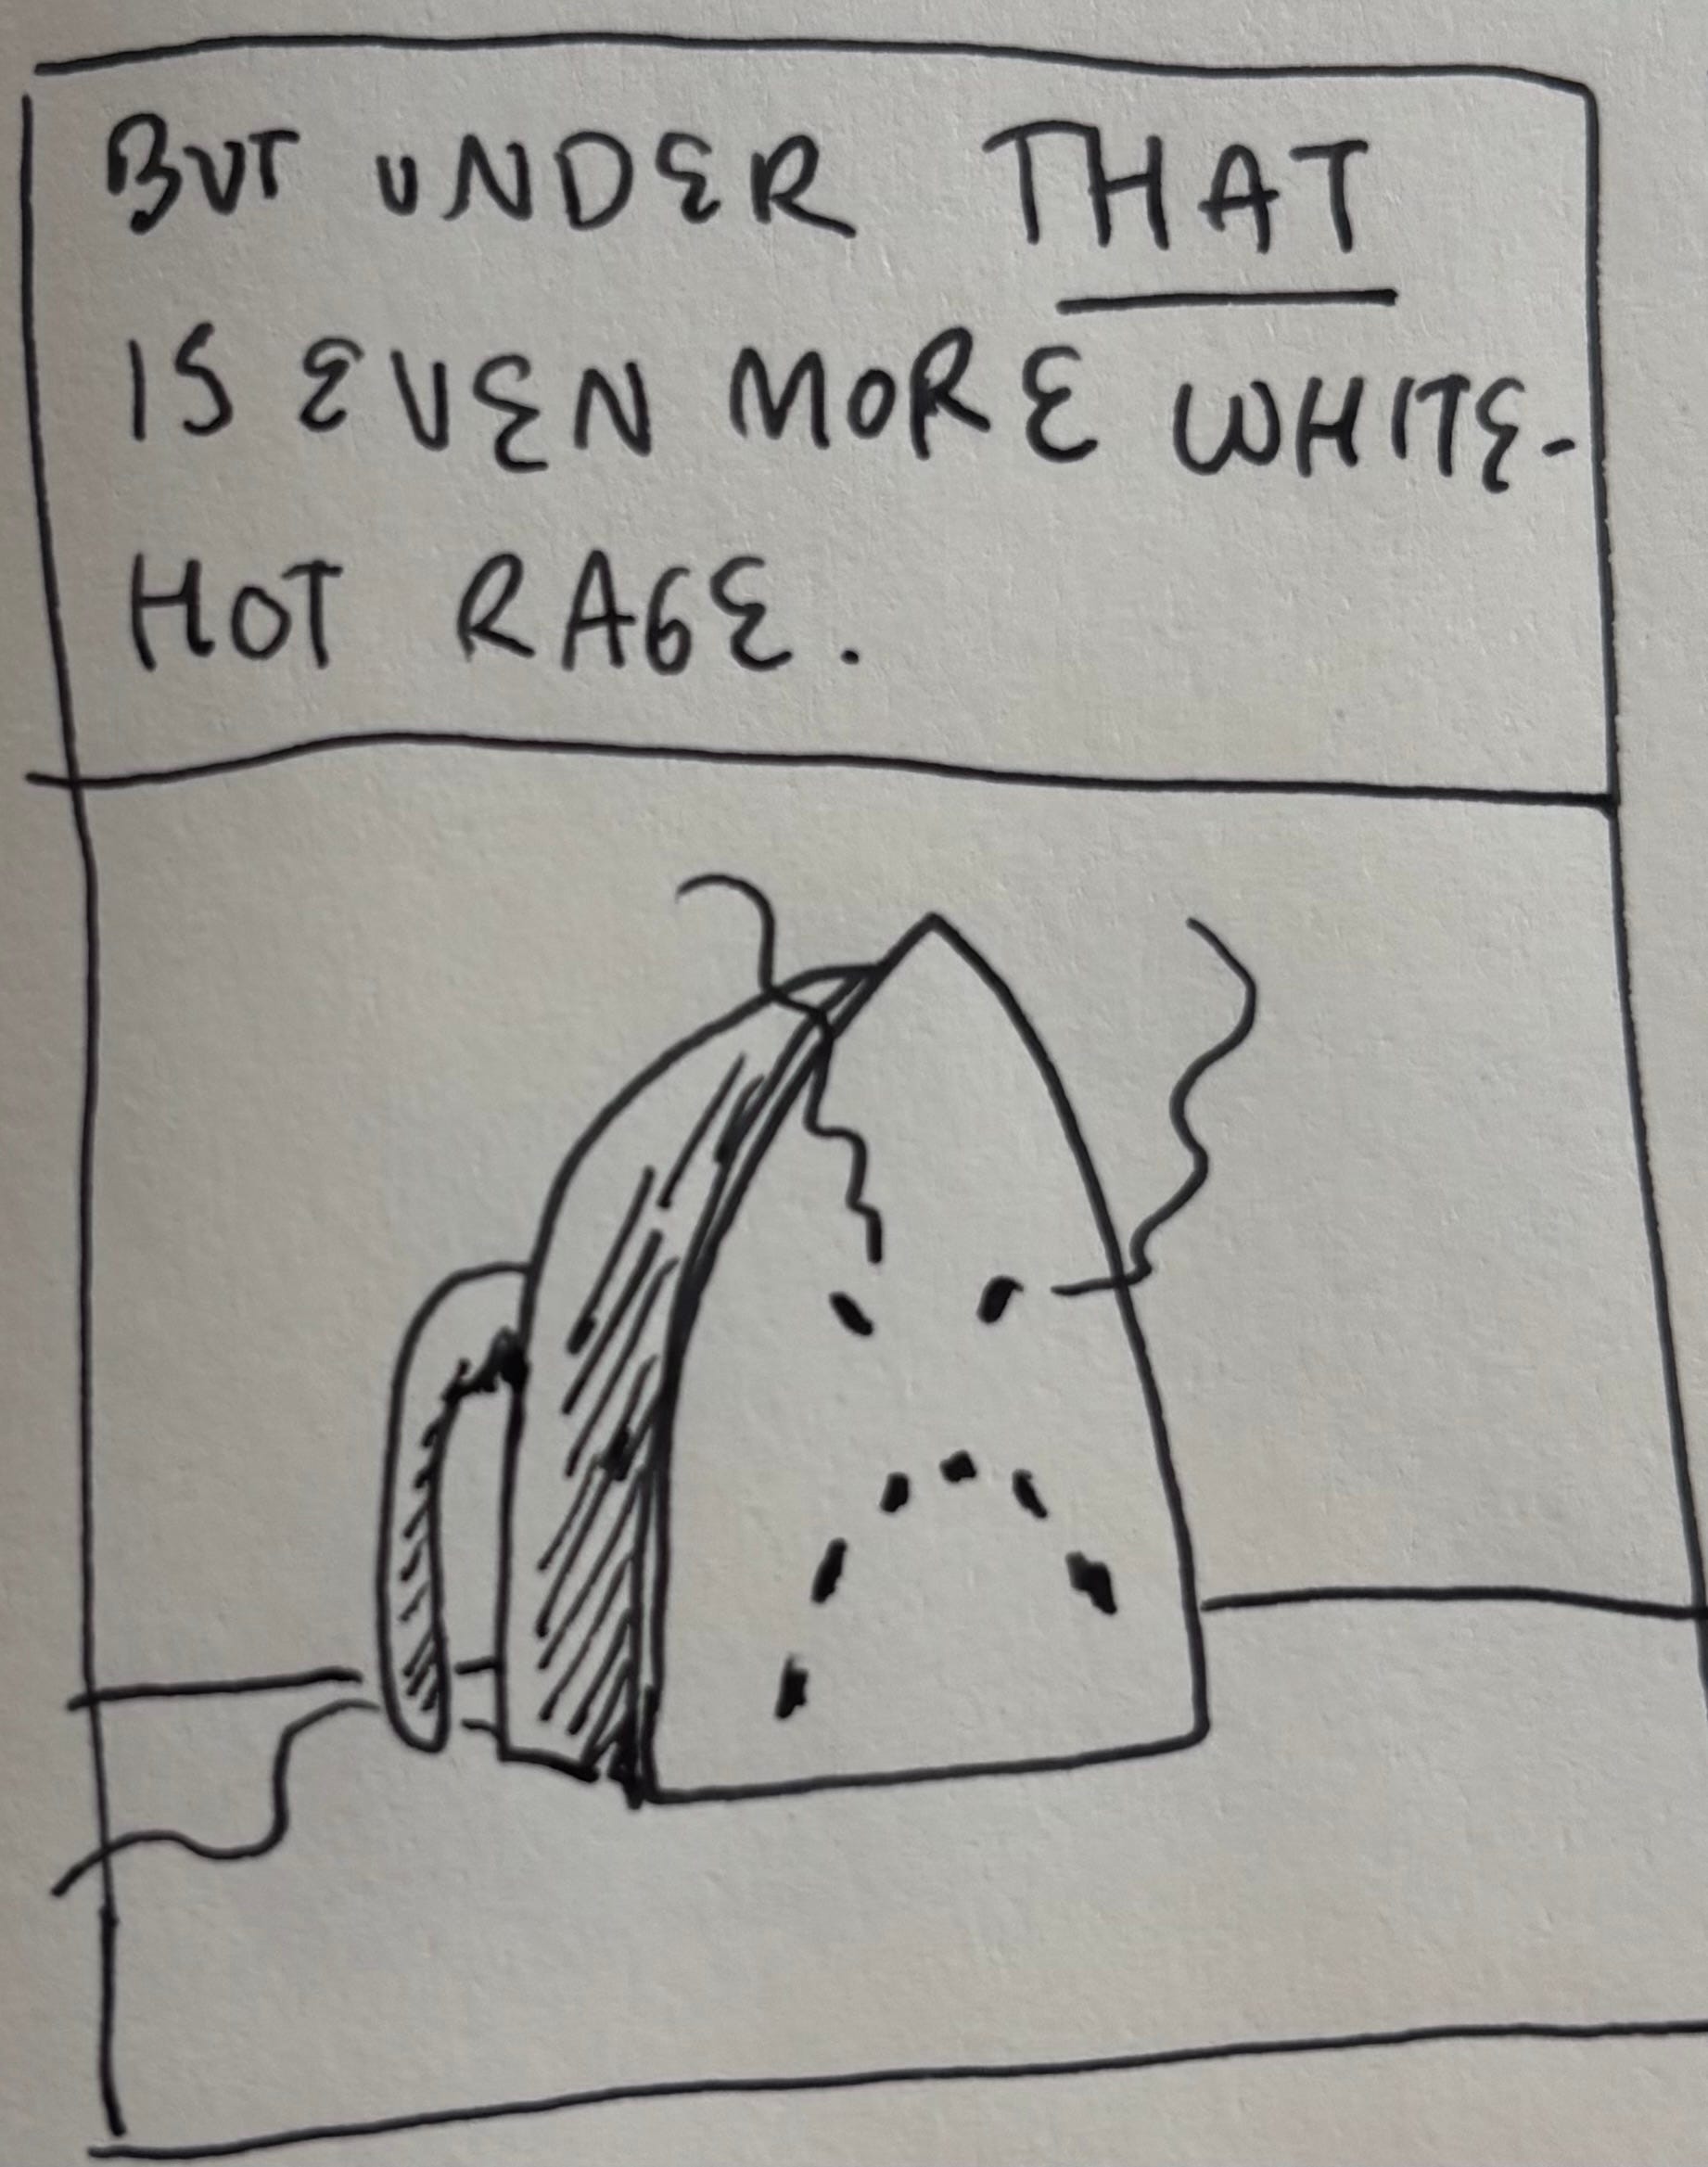 BUT UNDER THAT
IS EVEN MORE WHITE-
HOT RAGE.